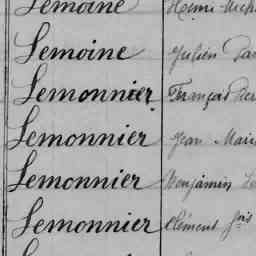 Lemoine
Lemoine Julien
Lemonnier François
Lemonnier Jean
Lemonnier Benjamin
Lemonnier Clément fois